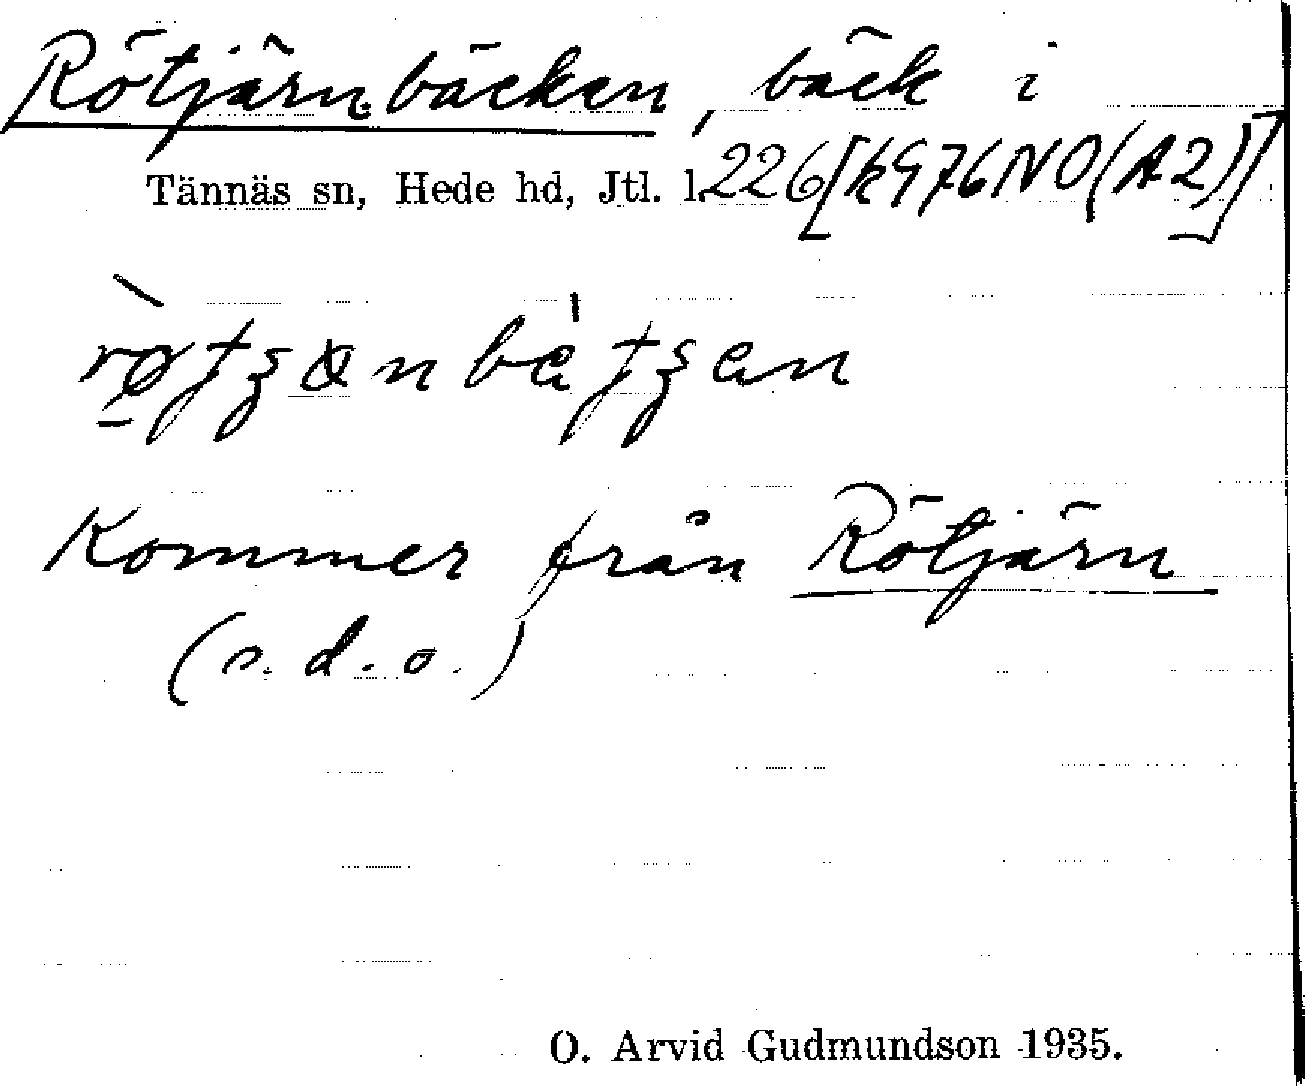 Rötjärnbäcken, bäck i
Tännäs sn, Hede hd, Jtl. l. 226 [k976NO(A2)]
Kommer från Rötjärn
(s.d.o.)
O. Arvid Gudmundson 1935.